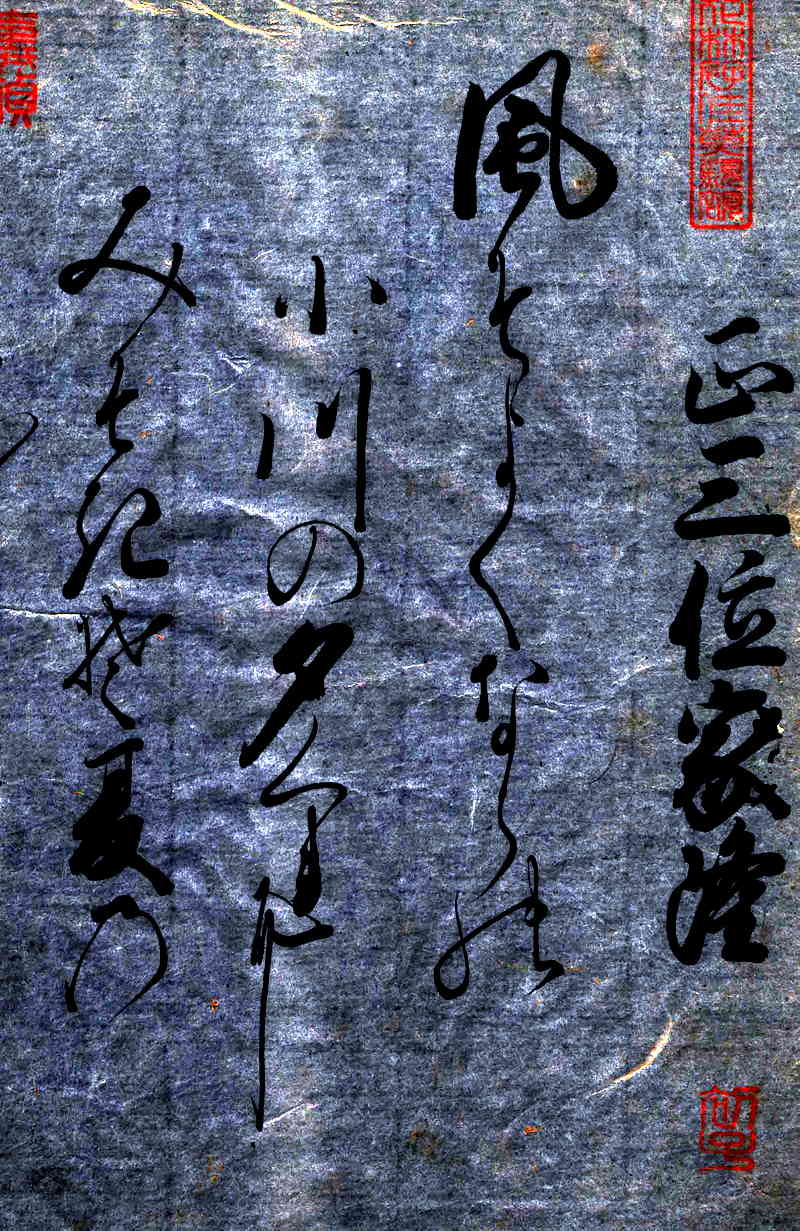 正三位家隆
風そよくならの
小川の夕くれは
みそ起楚夏乃